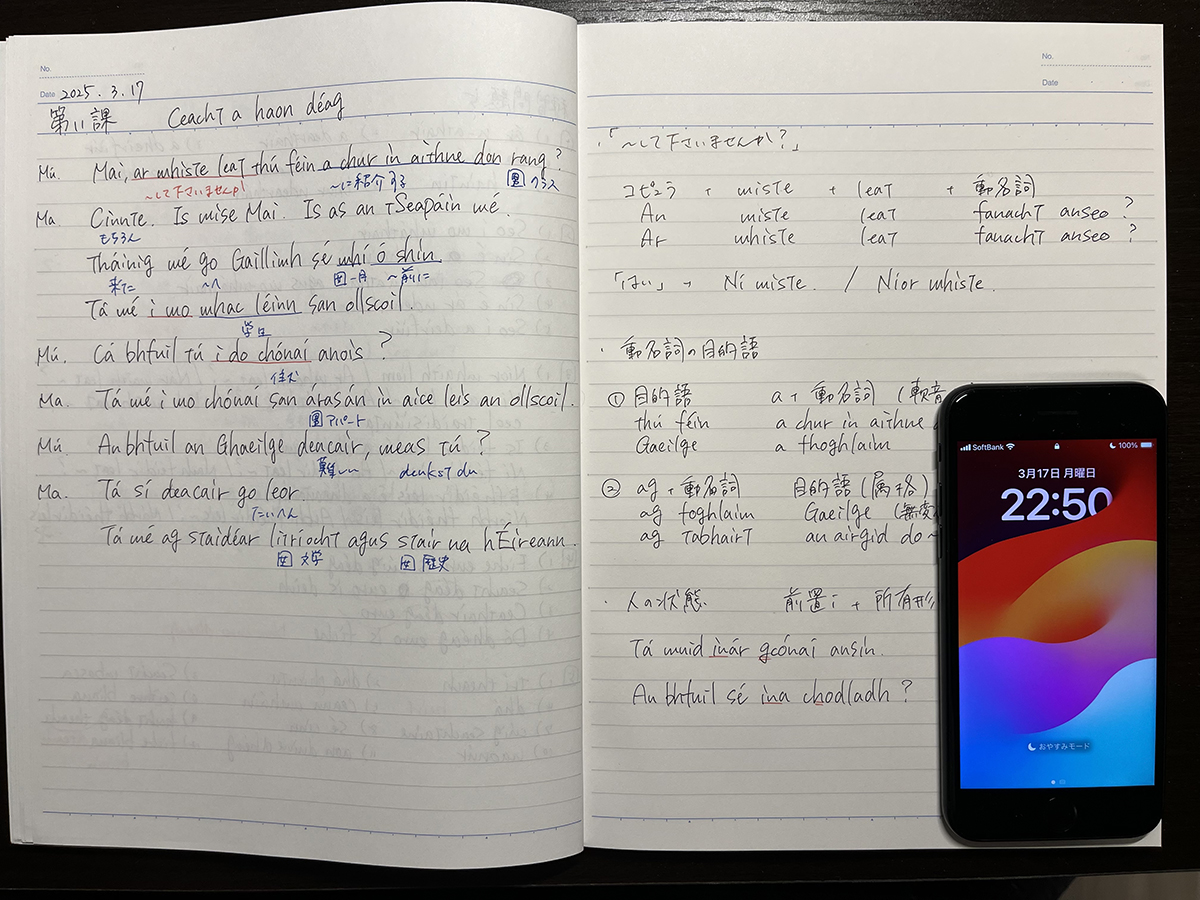 No.
Date 2025. 3. 17
第11課 Ceacht a haon déag
Mú. Mai, ar mhiste leat thú féin a chur in aithne don rang?
～して下さいませんか ～に紹介する 男 クラス
Ma. Cinnte. Is mise Mai. Is as an tSeapáin mé.
もちろん
Tháinig mé go Gaillimh sé mhí ó shin
来た ～へ 女 一月 ～前に
Tá mé i mo mhac léinn san ollscoil.
学生
Mú. Cá bhfuil tú i do chónaí anois?
住犬
Ma. Tá mé i mo chónaí san árasán in aice leis an ollscoil.
男 アパート
Mú. An bhfuil an Ghaeilge deacair, meas tú?
難しい denkst du
Ma. Tá sí deacair go leor.
たいへん
Tá mé ag staidéar litríocht agus stair na hÉireann.
女 文学 女 歴史
No.
Date
・「～して下さいませんか?」
コピュラ + miste + leat + 動名詞
An miste leat fanacht anseo?
Ar mhiste leat fanacht anseo?
「はい」→ Ní miste. / Níor mhiste.
・動名詞の目的語
① 目的語 a + 動名詞 (軟音
thú féin a chur in aithne
Gaeilge a fhoghlaim
② ag + 動名詞 目的語 (属格)
ag foghlaim Gaeilge (無変
ag tabhairt an airgid do ～
・人の状態 前置 i + 所有形
Tá muid inár gcónaí ansin.
An bhfuil sé ina chodladh?
SoftBank 100%
3月17日 月曜日
22:50
おやすみモード